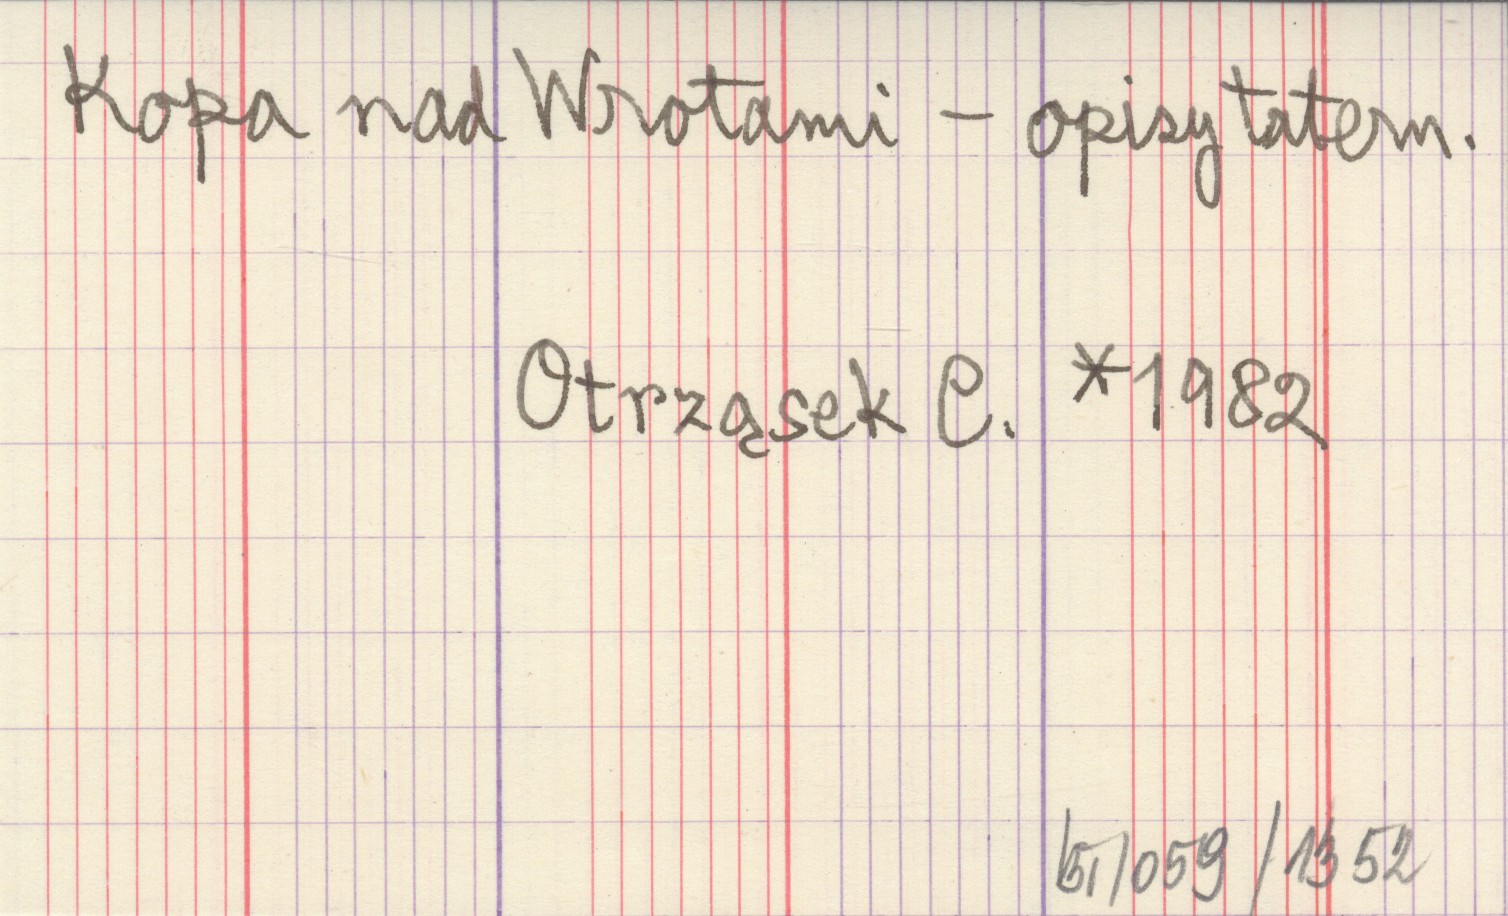 Kopa nad Wrotami - opisy tatern.
Otrząsek C. *1982
/059/1352